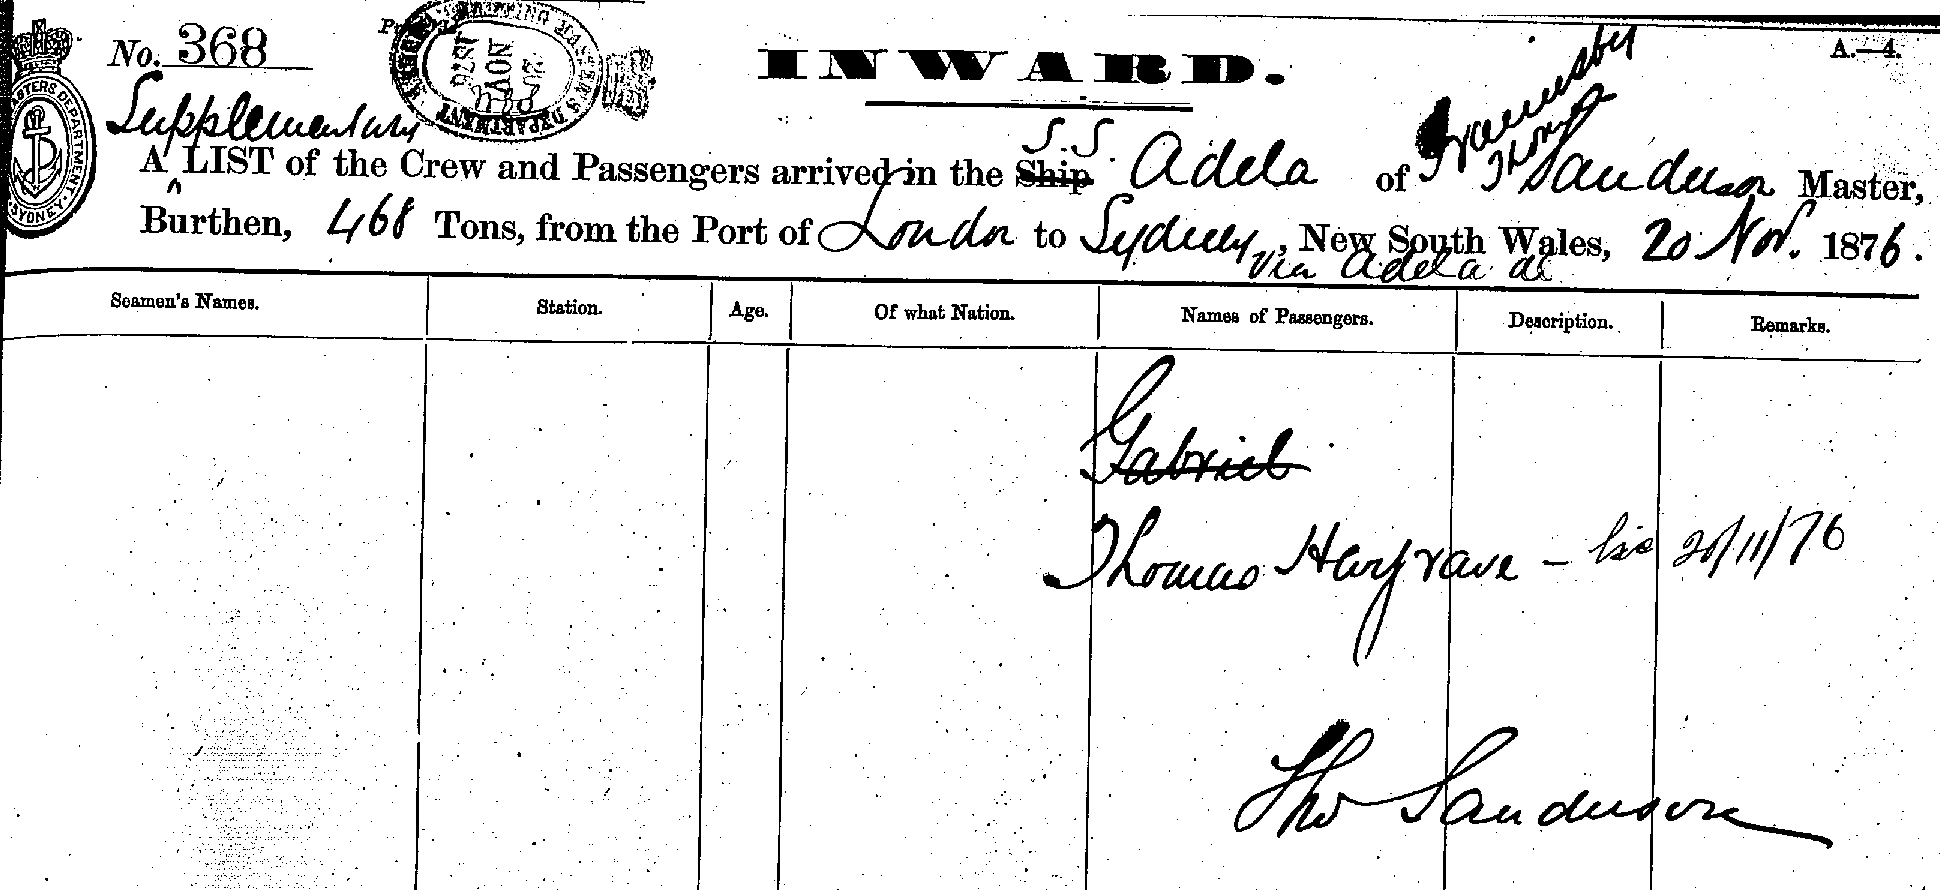 No. 368
INWARD.
A.—4.
SHIPPING MASTER'S DEPARTMENT
20 NOV 1876
MASTERS DEPARTMENT SYDNEY
Supplementary
A ^ LIST of the Crew and Passengers arrived in the Ship S.S. Adela of Grainsby Thos Sanderson Master,
Burthen, 468 Tons, from the Port of London to Sydney, New South Wales, 20 Nov. 1876.
via Adela de
Seamen's Names. Station. Age. Of what Nation. Names of Passengers. Description. Remarks.
Gabriel
Thomas Hargrave – lic 20/11/76
Tho Sanderson